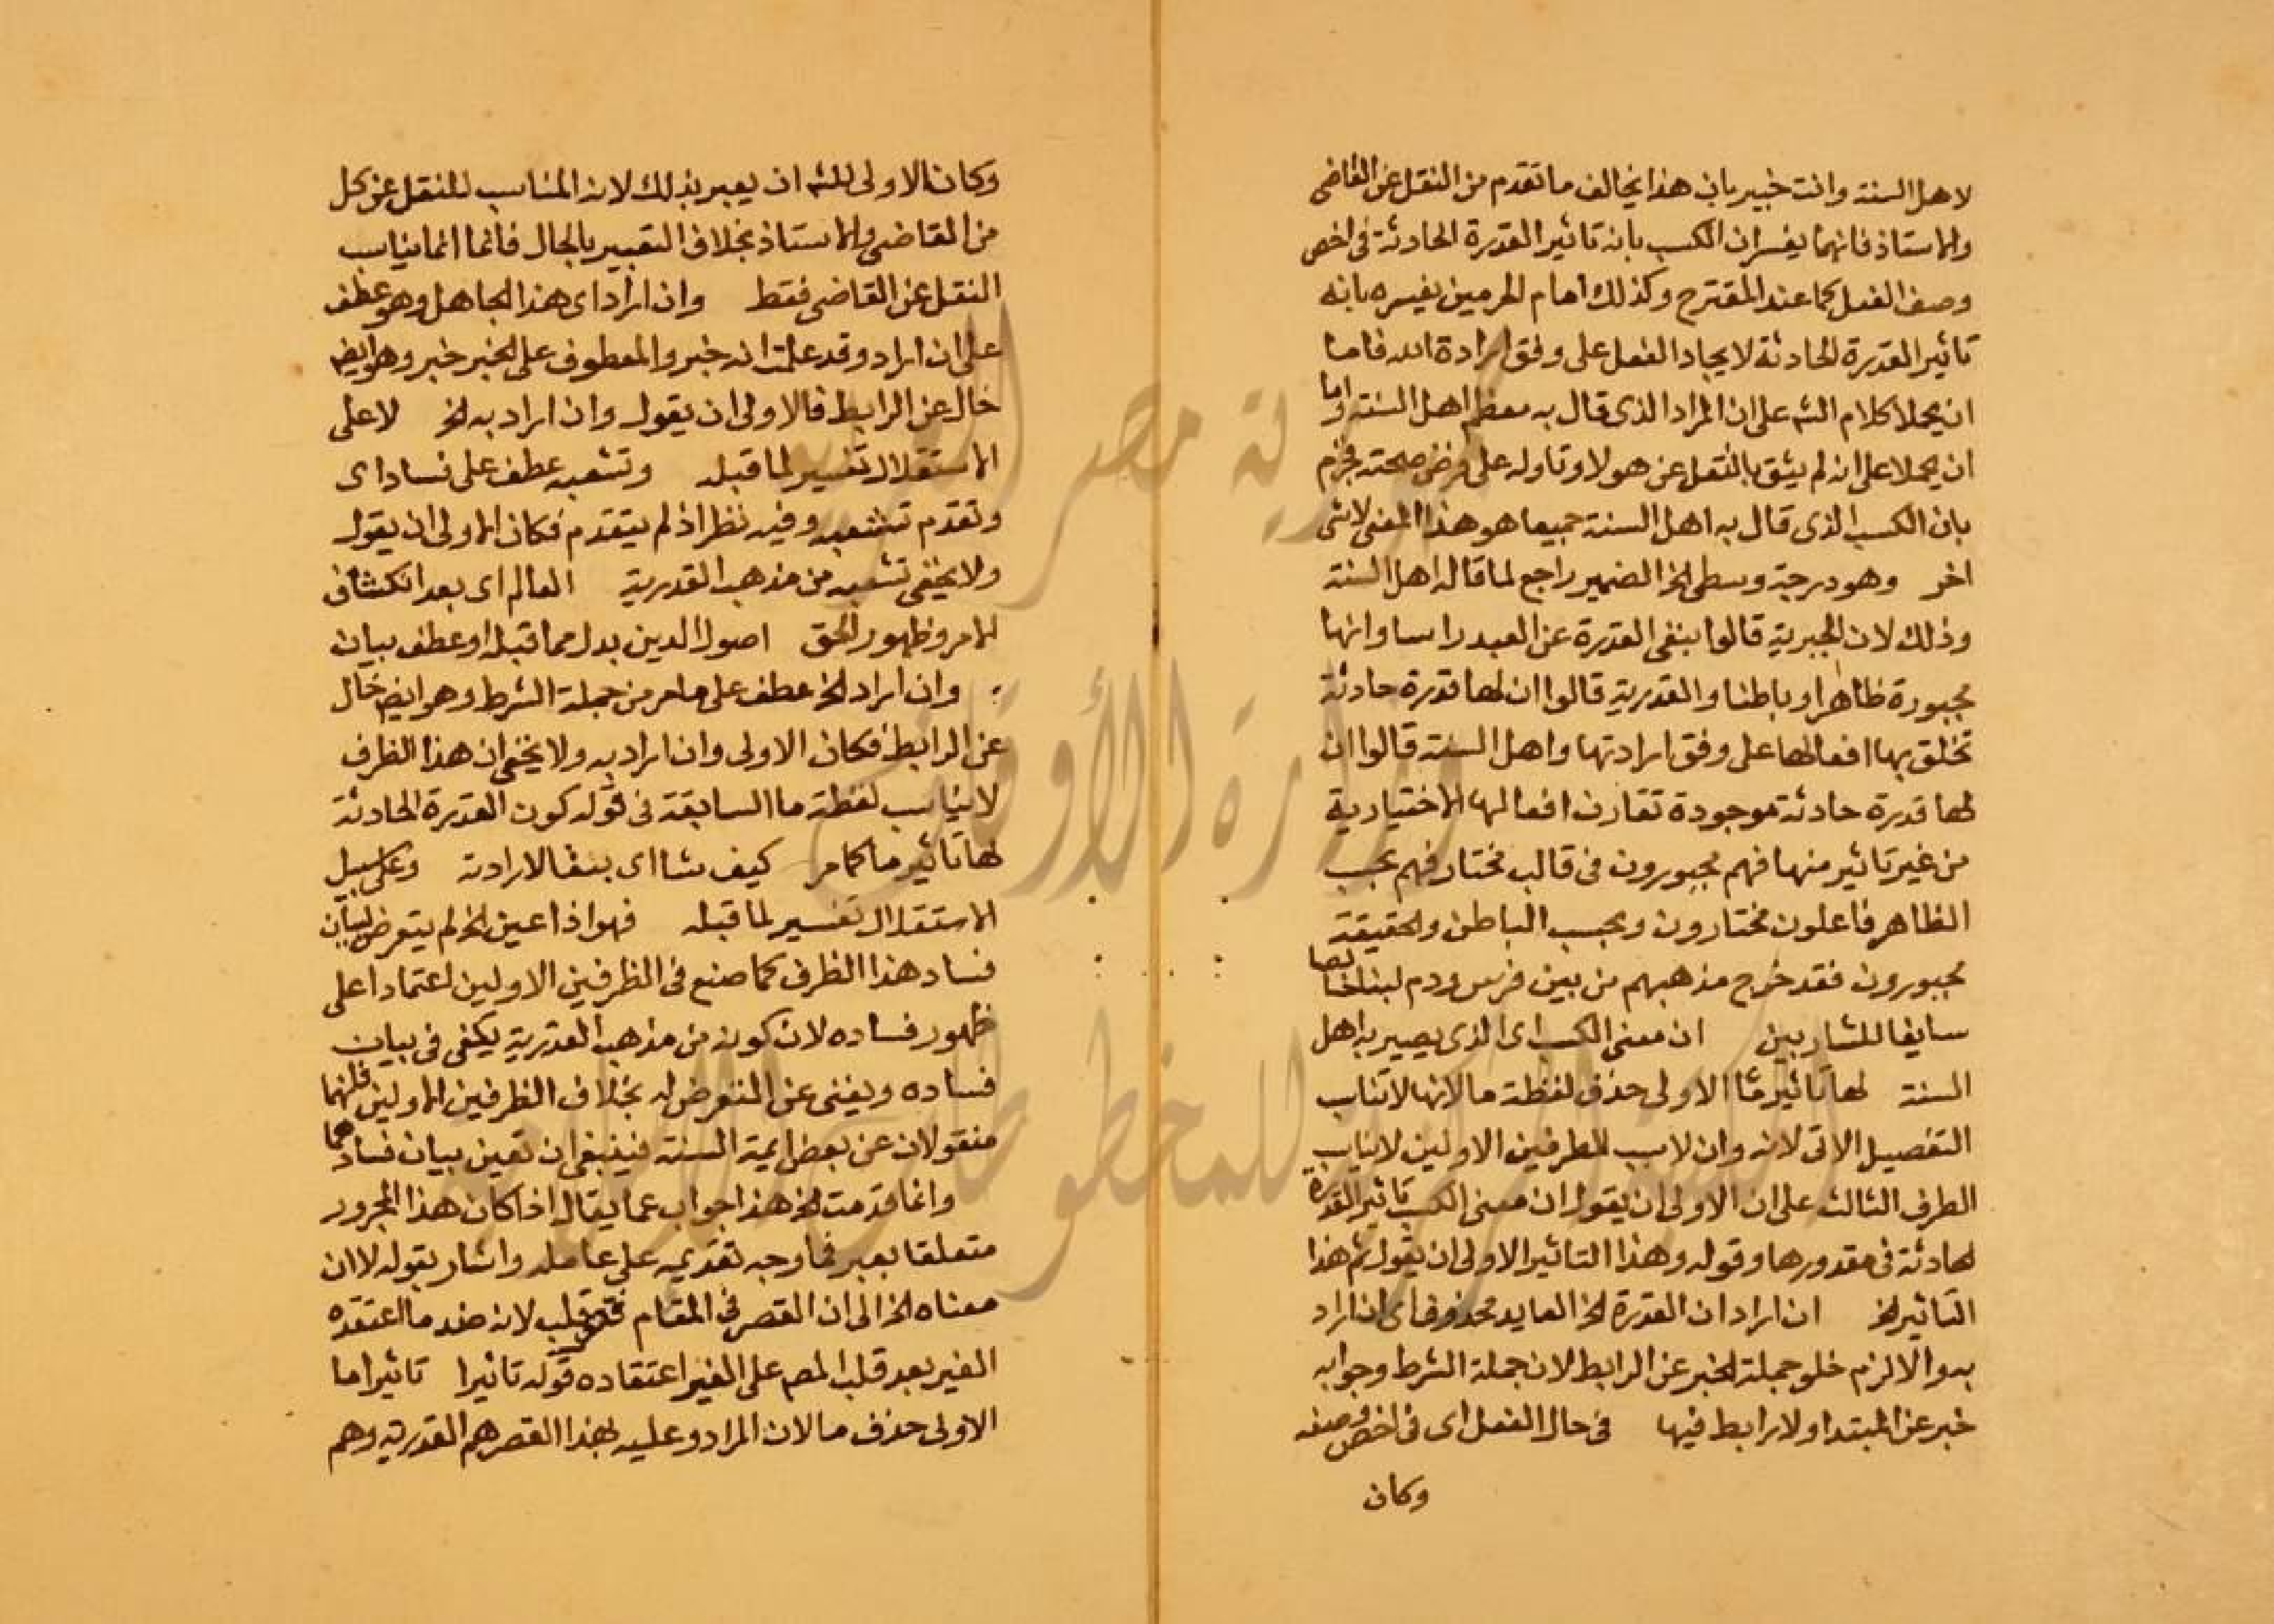 لاهل السنة وانت خبير بان هذا يخالف ما تقدم من النقل عن القاضى
والاستاذ فانهما يفسران الكسب بانه تاثير القدرة الحادثة فى اخص
وصف الفعل كما عند المقترح وكذلك امام الحرمين يفسره بانه
تاثير القدرة الحادثة لايجاد الفعل على وفق ارادة الله فاما
ان يحمل كلام الشه على ان المراد الذى قال به معظم اهل السنة واما
ان يحمل على انه لم يثق بالنقل عن هولا وتاوله على فرض صحته فجزم
بان الكسب الذى قال به اهل السنة جميعا هو هذا المعنى لاشى
اخر وهو درجة وسطى الخ الضمير راجع لما قاله اهل السنة
وذلك لان الجبرية قالوا بنفى القدرة عن العبد راسا وانها
مجبورة ظاهرا وباطنا والقدرية قالوا ان لها قدرة حادثة
تخلق بها افعالها على وفق ارادتها واهل السنة قالوا ان
لها قدرة حادثة موجودة تقارن افعالها الاختيارية
من غير تاثير منها فهم مجبورون فى قالب مختار فهم بحسب
الظاهر فاعلون مختارون وبحسب الباطن والحقيقة
مجبورون فقد خرج مذهبهم من بين فرس ودم لبنا خالصا
سايغا للشاربين ان معنى الكسب اى الذى يصير به اهل
السنة لها تاثيرما الاولى حذف لفظة ما لانها لاتناسب
التفصيل الاتى لانه وان لاسب للطرفين الاولين لايناسب
الطرف الثالث على ان الاولى ان يقول ان معنى الكسب تاثير القدرة
الحادثة فى مقدورها وقوله وهذا التاثير الاولى ان يقول ثم هذا
التاثير الخ ان اراد ان القدرة الخ العايد محذوف اى ان اراد
به والا لزم خلو جملة الخبر عن الرابط لان جملة الشرط وجوابه
خبر عن المبتدا ولا رابط فيها فى حال الفعل اى فى اخص وصفه
وكان
وكان الاولى للشه ان يعبر بذلك لانه المناسب للنقل عن كل
من القاضى والاستاذ بخلاف التعبير بالحال فانما انما يناسب
النقل عن القاضى فقط وان اراد اى هذا الجاهل وهو عطف
على ان اراد وقد علمت انه خبر والمعطوف على الخبر خبر وهو ايضه
خال عن الرابط فالاولى ان يقول وان اراد به الخ لا على
الاستقلال تفسير لما قبله وتشعبه عطف على فساد اى
وتقدم تشعبه وفيه نظر اذ لم يتقدم فكان الاولى ان يقول
ولا يخفى تشعبه من مذهب القدرية العالم اى بعد انكشاف
الامر وظهور الحق اصول الدين بدل مما قبله او عطف بيان
وان اراد الخ عطف على مامر من جملة الشرط وهو ايضه خال
عن الرابط فكان الاولى وان اراد به ولا يخفى ان هذا الظرف
لا يناسب لفظة ما السابقة فى قوله كون القدرة الحادثة
لها تاثير ما كما مر كيف شا اى بنفا الارادته وعلى سبيل
الاستقلال تفسير لما قبله فهو اذا عين الخ لم يتعرض لبيان
فساد هذا الظرف كما صنع فى الظرفين الاولين اعتمادا على
ظهور فساده لان كونه من مذهب القدرية يكفى فى بيان
فساده ويغنى عن التعرض له بخلاف الظرفين الاولين فانهما
منقولان عن بعض ايمة السنة فينبغى ان تعين بيان فسادهما
وانما قدمت الخ هذا جواب عما يقال اذا كان هذا المجرور
متعلقا بعبر فما وجه تقديمه على عامله واشار بقوله لا ان
معناه الخ الى ان القصر فى المقام قصر قلب لانه ضد ما اعتقده
الغير بعد قلب المصه على الغير اعتقاده قوله تاثيرا تاثيرا ما
الاولى حذف ما لان المراد وعليه بهذا القصر هم القدرية وهم